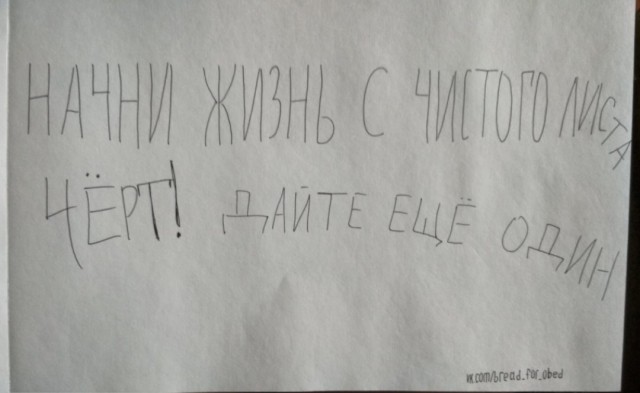 НАЧНИ ЖИЗНЬ С ЧИСТОГО ЛИСТА
ЧЁРТ! ДАЙТЕ ЕЩЁ ОДИН
vk.com/bread_for_obed